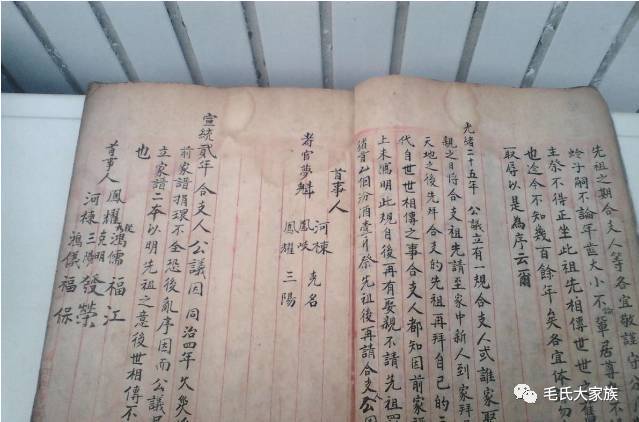 先祖之期合支人等各宜敬謹守
蛉子嗣不論年茁大小不論輩居尊不
主祭不得正坐此祖先相傳世世舊
也迄今不知幾百餘年矣各宜体勿
取辱以是為序云爾
光緒二十五年 公議立有一規合支人或誰家娶
親之日將合支祖先請至家中新人到家拜
天地之後先拜合支的先祖再拜自己的三
代自世世相傳之事合支人都知因前家譜
上未寫明此規自後再有娶親不請先祖罰
個汾酒壹斤祭先祖後再請合支公
首事人
河棟 克名
鳳岐
耆官夢麟
鳳耀 三陽
宣統貳年 合支人公議因 同治四年欠災
前家譜損壞不全恐後亂序因而公議
立家譜二本以明先祖之意後世相傳不
也
首事人 鳳耀 鴻儒 福江
克明
河棟 三陽 發榮
鴻儀 福保
毛氏大家族